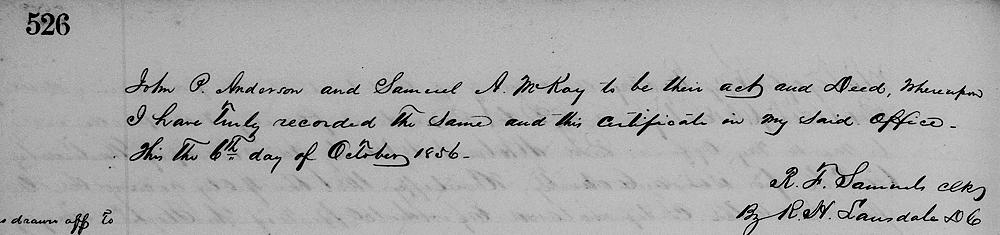 526
John P. Anderson and Samuel A. McKay to be their act and Deed, Whereupon
I have truly recorded the Same and this certificate in my said office-
This the 6th day of October 1856-
R. F. Samuels Clk
s drawn off to
By R. H. Lansdale D C